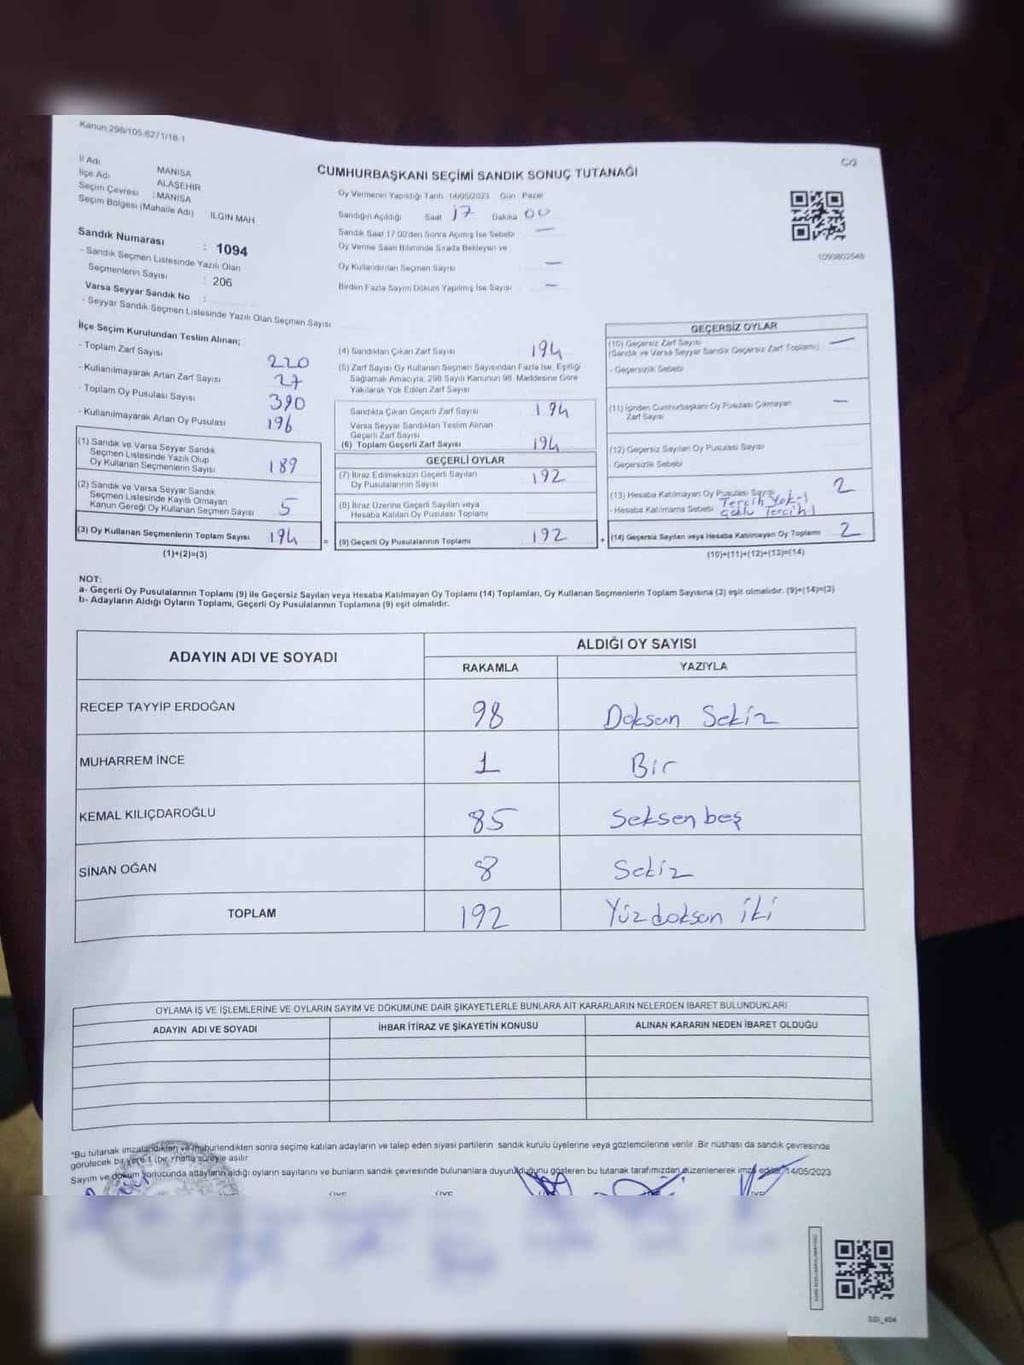 Kanun:298/105,6271/18-1
C2
İl Adı MANİSA
İlçe Adı ALAŞEHİR
Seçim Çevresi : MANİSA
Seçim Bölgesi (Mahalle Adı) ILGIN MAH
CUMHURBAŞKANI SEÇİMİ SANDIK SONUÇ TUTANAĞI
Oy Vermenin Yapıldığı Tarih 14/05/2023 Gün Pazar
Sandığın Açıldığı Saat 17 Dakika 00
Sandık Saat 17:00'den Sonra Açılmış İse Sebebi —
Oy Verme Saati Bitiminde Sırada Bekleyen ve
Oy Kullandırılan Seçmen Sayısı —
Birden Fazla Sayım Döküm Yapılmış İse Sayısı —
1090802548
Sandık Numarası : 1094
- Sandık Seçmen Listesinde Yazılı Olan
Seçmenlerin Sayısı : 206
Varsa Seyyar Sandık No :
- Seyyar Sandık Seçmen Listesinde Yazılı Olan Seçmen Sayısı
İlçe Seçim Kurulundan Teslim Alınan;
- Toplam Zarf Sayısı 220
- Kullanılmayarak Artan Zarf Sayısı 27
- Toplam Oy Pusulası Sayısı 390
- Kullanılmayarak Artan Oy Pusulası 196
(1) Sandık ve Varsa Seyyar Sandık
Seçmen Listesinde Yazılı Olup
Oy Kullanan Seçmenlerin Sayısı 189
(2) Sandık ve Varsa Seyyar Sandık
Seçmen Listesinde Kayıtlı Olmayan
Kanun Gereği Oy Kullanan Seçmen Sayısı 5
(3) Oy Kullanan Seçmenlerin Toplam Sayısı 194 =
(1)+(2)=(3)
(4) Sandıktan Çıkan Zarf Sayısı 194
(5) Zarf Sayısı Oy Kullanan Seçmen Sayısından Fazla İse, Eşitliği
Sağlamak Amacıyla; 298 Sayılı Kanunun 98. Maddesine Göre
Yakılarak Yok Edilen Zarf Sayısı
Sandıkta Çıkan Geçerli Zarf Sayısı 194
Varsa Seyyar Sandıktan Teslim Alınan
Geçerli Zarf Sayısı
(6) Toplam Geçerli Zarf Sayısı 194
GEÇERLİ OYLAR
(7) İtiraz Edilmeksizin Geçerli Sayılan
Oy Pusulalarının Sayısı 192
(8) İtiraz Üzerine Geçerli Sayılan veya
Hesaba Katılan Oy Pusulası Toplamı
(9) Geçerli Oy Pusulalarının Toplamı 192 +
GEÇERSİZ OYLAR
(10) Geçersiz Zarf Sayısı —
(Sandık ve Varsa Seyyar Sandık Geçersiz Zarf Toplamı)
- Geçersizlik Sebebi
(11) İçinden Cumhurbaşkanı Oy Pusulası Çıkmayan —
Zarf Sayısı
(12) Geçersiz Sayılan Oy Pusulası Sayısı
- Geçersizlik Sebebi
(13) Hesaba Katılmayan Oy Pusulası Sayısı 2
- Hesaba Katılmama Sebebi Tercih Yok-1
Çoklu Tercih 1
(14) Geçersiz Sayılan veya Hesaba Katılmayan Oy Toplamı 2
(10)+(11)+(12)+(13)=(14)
NOT:
a- Geçerli Oy Pusulalarının Toplamı (9) ile Geçersiz Sayılan veya Hesaba Katılmayan Oy Toplamı (14) Toplamları, Oy Kullanan Seçmenlerin Toplam Sayısına (3) eşit olmalıdır. (9)+(14)=(3)
b- Adayların Aldığı Oyların Toplamı, Geçerli Oy Pusulalarının Toplamına (9) eşit olmalıdır.
ADAYIN ADI VE SOYADI ALDIĞI OY SAYISI
RAKAMLA YAZIYLA
RECEP TAYYİP ERDOĞAN 98 Doksan Sekiz
MUHARREM İNCE 1 Bir
KEMAL KILIÇDAROĞLU 85 Seksen beş
SİNAN OĞAN 8 Sekiz
TOPLAM 192 Yüz doksan iki
OYLAMA İŞ VE İŞLEMLERİNE VE OYLARIN SAYIM VE DÖKÜMÜNE DAİR ŞİKAYETLERLE BUNLARA AİT KARARLARIN NELERDEN İBARET BULUNDUKLARI
ADAYIN ADI VE SOYADI İHBAR İTİRAZ VE ŞİKAYETİN KONUSU ALINAN KARARIN NEDEN İBARET OLDUĞU
*Bu tutanak imzalandıktan ve mühürlendikten sonra seçime katılan adayların ve talep eden siyasi partilerin sandık kurulu üyelerine veya gözlemcilerine verilir. Bir nüshası da sandık çevresinde
görülecek bir yere 1 (bir) hafta süreyle asılır.
Sayım ve döküm sonucunda adayların aldığı oyların sayılarını ve bunların sandık çevresinde bulunanlara duyurulduğunu gösteren bu tutanak tarafımızdan düzenlenerek imza edildi. 14/05/2023